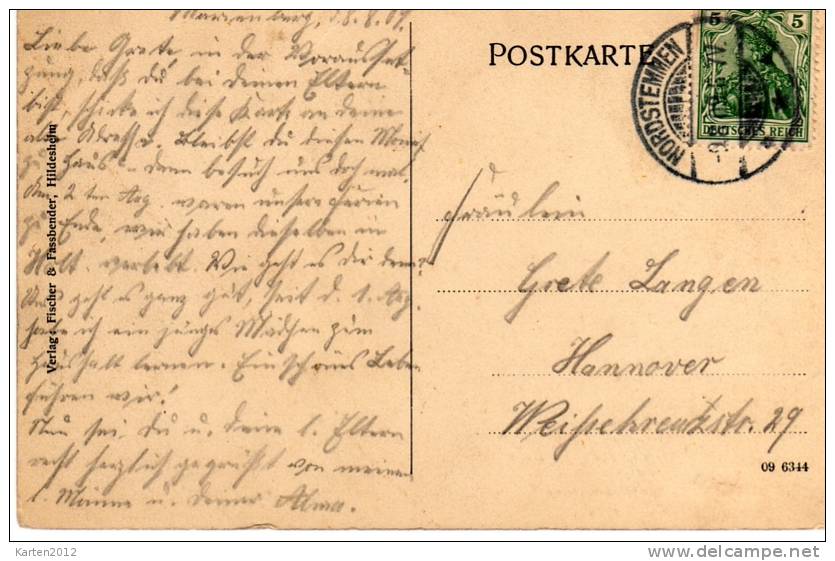 Marienburg, d. 8.8.09.
Liebe Grete, in der Voraussetzung,
daß du bei deinen Eltern
bist, schicke ich diese Karte an deine
alte Adresse. Bleibst du diesen Monat
zu Haus, dann besuch uns doch mal.
Am 2 ten Aug. waren unsere Ferien
zu Ende, wir haben dieselben in
verlebt. Wie geht es dir denn?
Uns geht es ganz gut, seit d. 1. Aug.
habe ich ein junges Mädchen zum
Haushalt lernen. Ein schönes Leben
führen wir!
Nun sei du u. deine l. Eltern
recht herzlich gegrüßt von meinem
l. Manne u. deiner Alma.
Verlag: Fischer & Fassbender, Hildesheim
POSTKARTE
5 5
DEUTSCHES REICH
NORDSTEMMEN
Fräulein
Grete Langen
Hannover
Weißekreuzstr. 29
09 6344
Karten2012
delcampe.net